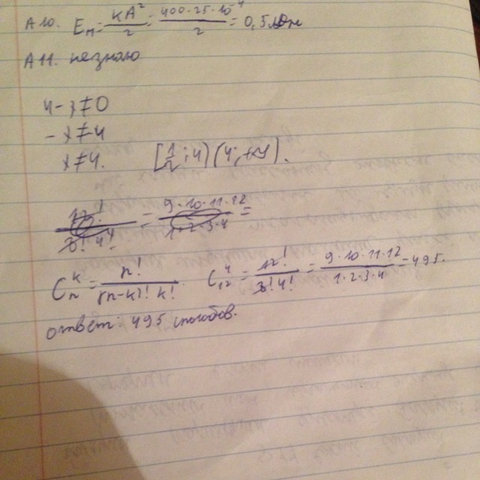 А10. Eп = kA²/2 = 400·25·10⁻⁴/2 = 0,5 Дж
А11. не знаю
4-x≠0
-x≠4
x≠4. [1/2; 4) (4; +∞).
12!/3! 4! = 9·10·11·12/1·2·3·4 =
C_n^k = n!/(n-k)! k! C_12^4 = 12!/8! 4! = 9·10·11·12/1·2·3·4 = 495.
ответ: 495 способов.